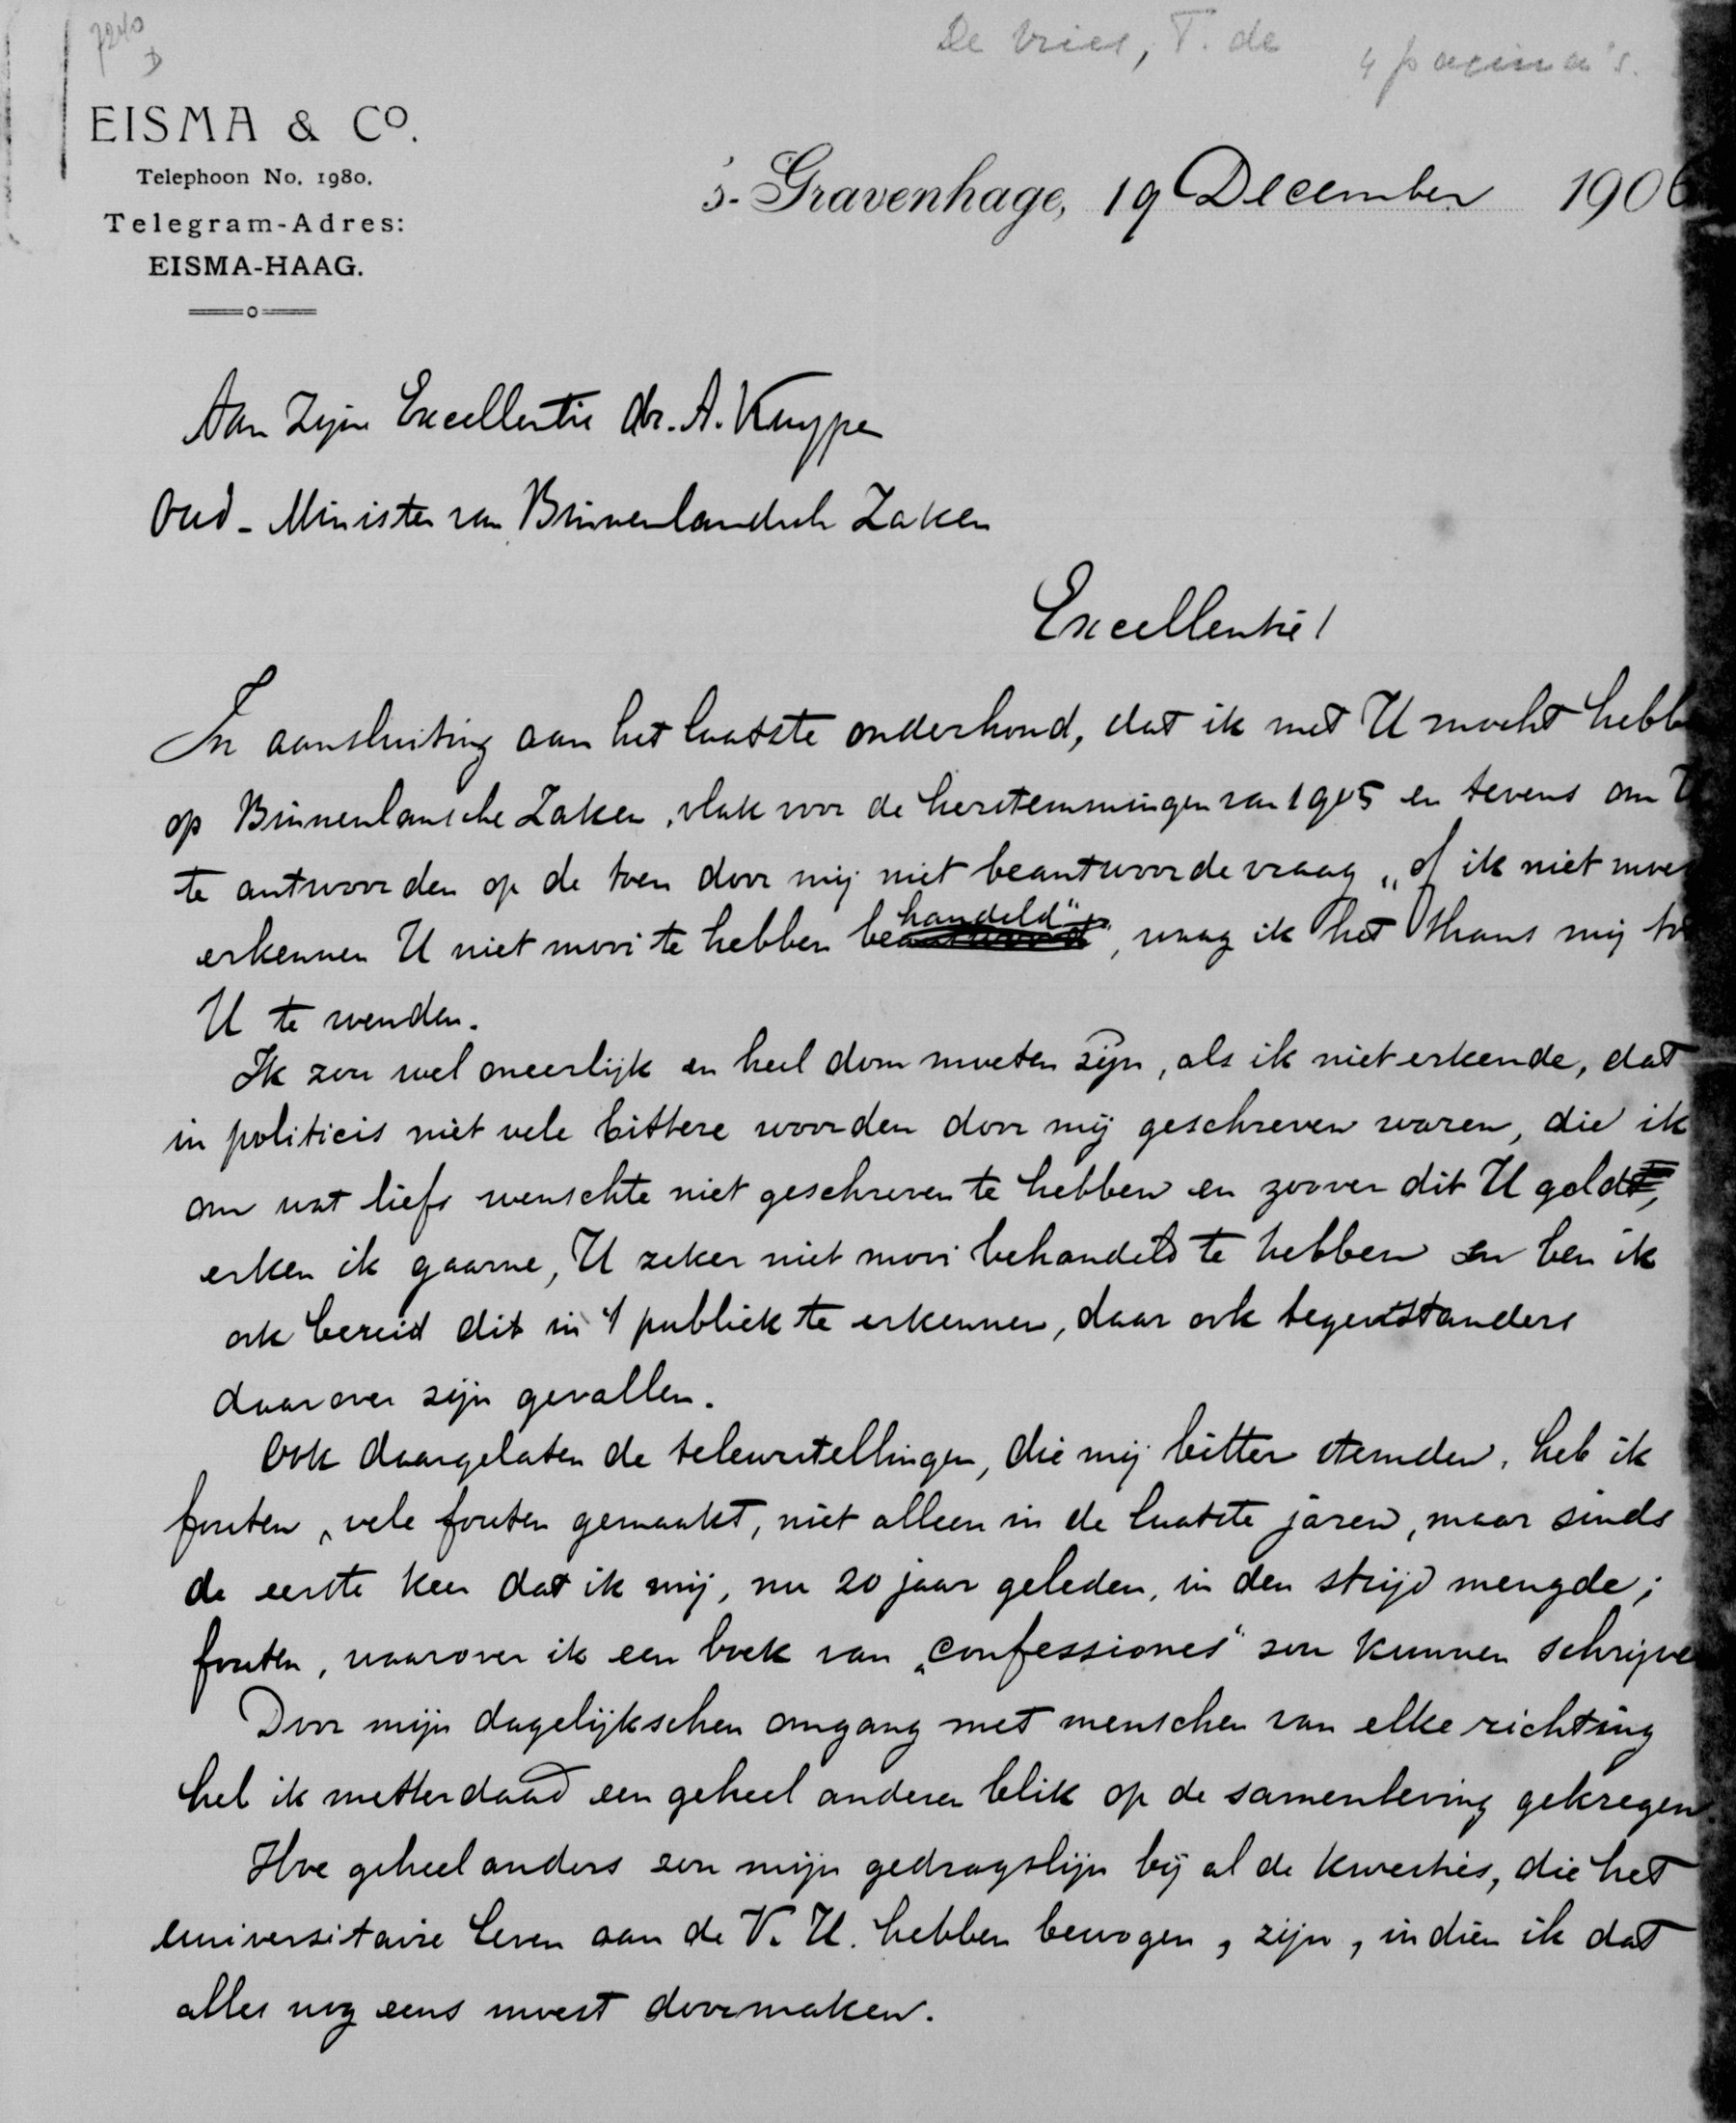 7240
D
De Vries, T. de 4 pagina's.
EISMA & Co.
Telephoon No. 1980.
Telegram-Adres:
EISMA-HAAG.
's-Gravenhage, 19 December 1906
Aan Zijne Excellentie dr. A. Kuyper
Oud-Minister van Binnenlandsche Zaken
Excellentie!
In aansluiting aan het laatste onderhoud, dat ik met U mocht hebb
op Binnenlansche Zaken, vlak voor de herstemmingen van 1905 en tevens om U
te antwoorden op de toen door mij niet beantwoorde vraag „of ik niet moe
erkennen U niet mooi te hebben behandeld", waag ik het thans mij to
U te wenden.
Ik zou wel oneerlijk en heel dom moeten zijn, als ik niet erkende, dat
in politicis niet vele bittere woorden door mij geschreven waren, die ik
om wat liefs wenschte niet geschreven te hebben en zoover dit U gold,
erken ik gaarne, U zeker niet mooi behandeld te hebben en ben ik
ook bereid dit in 't publiek te erkennen, daar ook tegenstanders
daarover zijn gevallen.
Ook daargelaten de teleurstellingen, die mij bitter stemden, heb ik
fouten, vele fouten gemaakt, niet alleen in de laatste jaren, maar sinds
de eerste keer dat ik mij, nu 20 jaar geleden, in den strijd mengde;
fouten, waarover ik een boek van „confessiones" zou kunnen schrijve
Door mijn dagelijkschen omgang met menschen van elke richting
heb ik metterdaad een geheel anderen blik op de samenleving gekregen
Hoe geheel anders zou mijn gedragslijn bij al de kwesties, die het
universitaire leven aan de V. U. hebben bewogen, zijn, indien ik dat
alles nog eens moest doormaken.